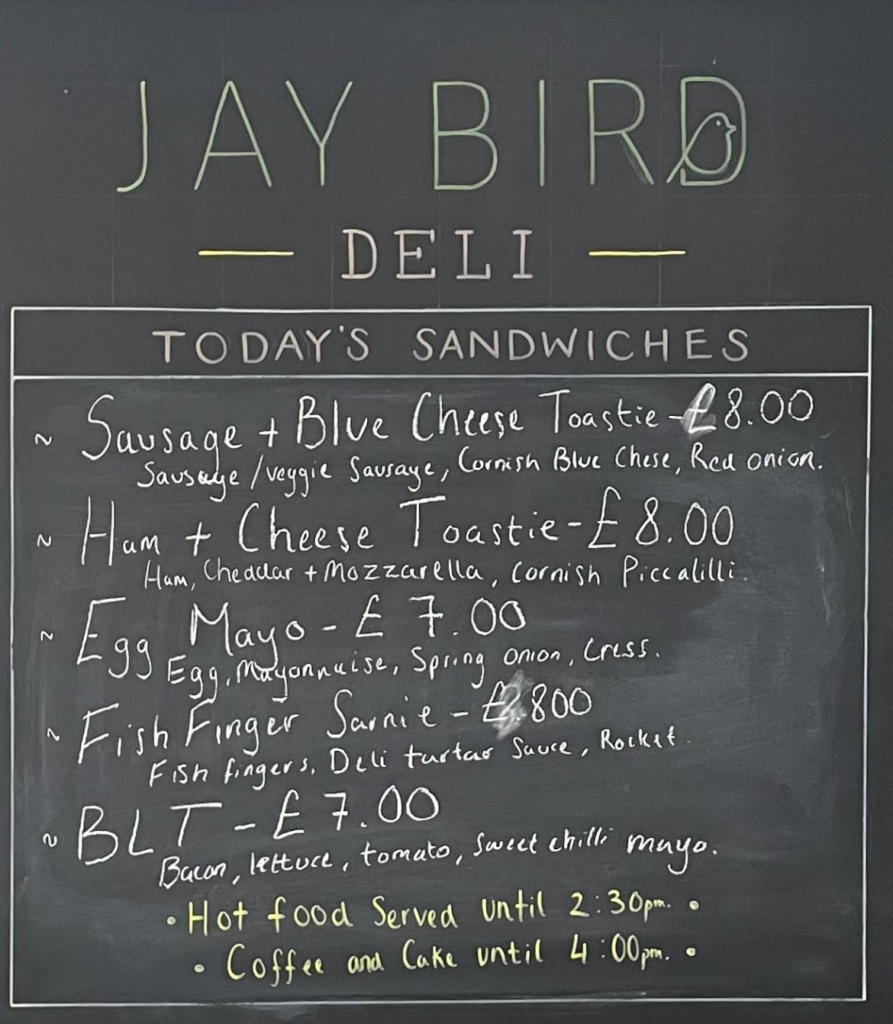 JAY BIRD
DELI
TODAY'S SANDWICHES
~ Sausage + Blue Cheese Toastie - £8.00
Sausage / veggie Sausage, Cornish Blue Chese, Red onion.
~ Ham + Cheese Toastie - £8.00
Ham, Cheddar + Mozzarella, Cornish Piccalilli.
~ Egg Mayo - £7.00
Egg, Mayonnaise, Spring onion, Cress.
~ Fish Finger Sarnie - £800
Fish fingers, Deli tartar Sauce, Rocket.
~ BLT - £7.00
Bacon, lettuce, tomato, sweet chilli mayo.
• Hot food Served until 2:30pm. •
• Coffee and Cake until 4:00pm. •